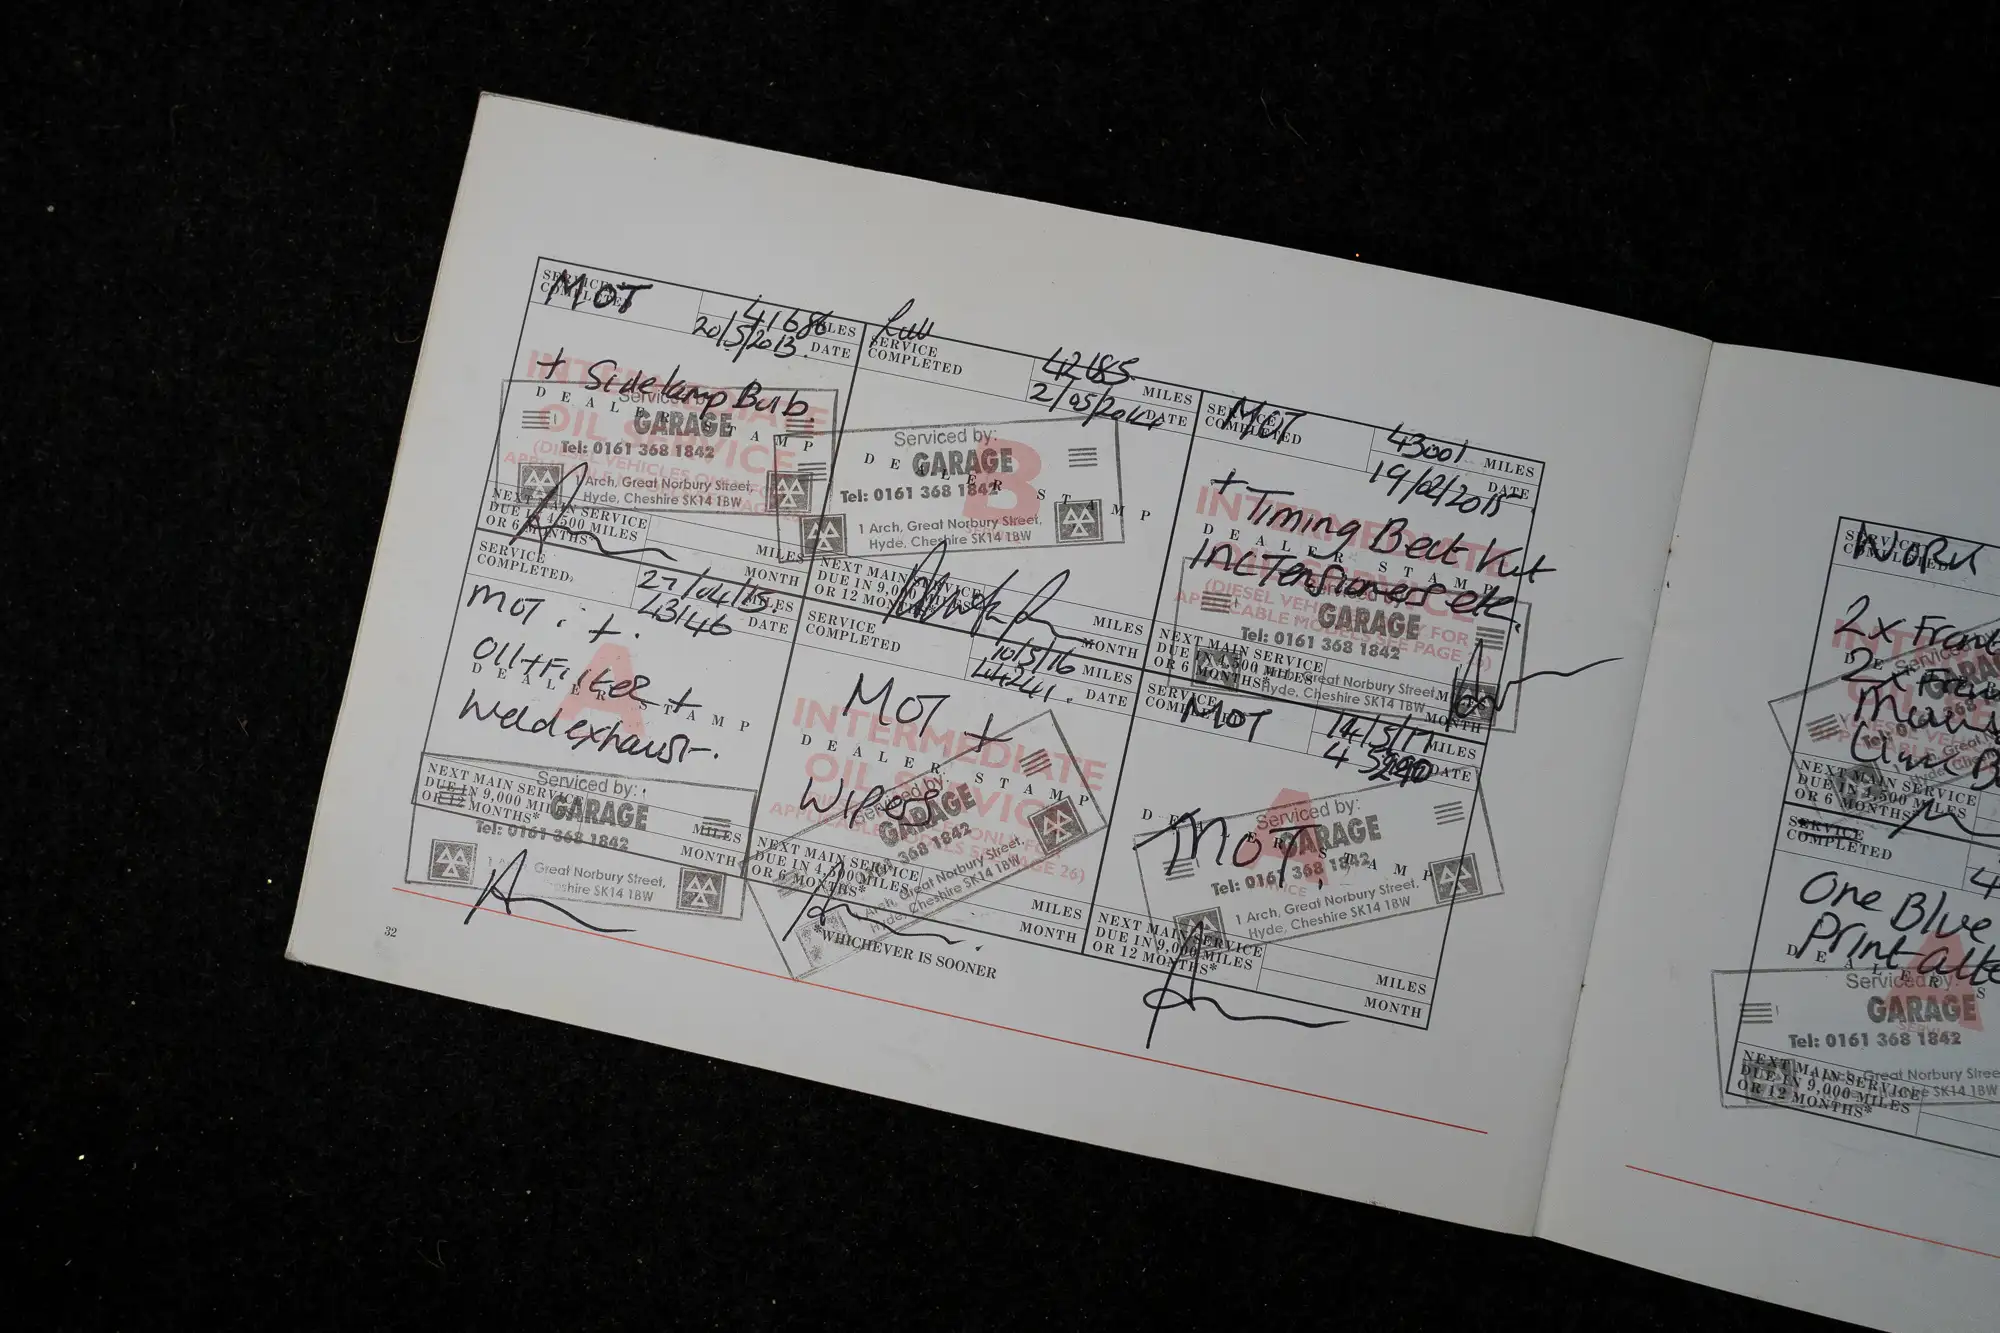 SERVICE
COMPLETED
MOT
41686 MILES
20/5/2013. DATE
+ Sidelamp Bulb.
INTERMEDIATE
OIL SERVICE
DEALER STAMP
Serviced by:
GARAGE
Tel: 0161 368 1842
1 Arch, Great Norbury Street,
Hyde, Cheshire SK14 1BW
NEXT MAIN SERVICE
DUE IN 4,500 MILES
OR 6 MONTHS*
MILES
MONTH
Full
SERVICE
COMPLETED
42685 MILES
2/05/2014 DATE
B
DEALER STAMP
Serviced by:
GARAGE
Tel: 0161 368 1842
1 Arch, Great Norbury Street,
Hyde, Cheshire SK14 1BW
NEXT MAIN SERVICE
DUE IN 9,000 MILES
OR 12 MONTHS*
MILES
MONTH
SERVICE
COMPLETED
MOT
43001 MILES
19/02/2015 DATE
+ Timing Beet Kit
INC Tensioners etc.
INTERMEDIATE
OIL SERVICE
DEALER STAMP
Serviced by:
GARAGE
Tel: 0161 368 1842
Great Norbury Street,
Hyde, Cheshire SK14 1BW
NEXT MAIN SERVICE
DUE IN 4,500 MILES
OR 6 MONTHS*
MONTH
SERVICE
COMPLETED
27/04/15. MILES
43146 DATE
MOT. +.
Oil + Filter +
Weld exhaust.
A
DEALER STAMP
Serviced by:
GARAGE
Tel: 0161 368 1842
Great Norbury Street,
Cheshire SK14 1BW
NEXT MAIN SERVICE
DUE IN 9,000 MILES
OR 12 MONTHS*
MILES
MONTH
SERVICE
COMPLETED
10/5/16 MILES
44241. DATE
MOT +
Wipers
INTERMEDIATE
OIL SERVICE
DEALER STAMP
Serviced by:
GARAGE
368 1842
Arch, Great Norbury Street,
Hyde, Cheshire SK14 1BW
NEXT MAIN SERVICE
DUE IN 4,500 MILES
OR 6 MONTHS*
MILES
MONTH
SERVICE
COMPLETED
MOT
14/5/17 MILES
DATE
MOT.
A
DEALER STAMP
Serviced by:
GARAGE
Tel: 0161 368 1842
1 Arch, Great Norbury Street,
Hyde, Cheshire SK14 1BW
NEXT MAIN SERVICE
DUE IN 9,000 MILES
OR 12 MONTHS*
MILES
MONTH
*WHICHEVER IS SOONER
32
SERVICE
COMPLETED
Work
2x Front
2x
NEXT MAIN SERVICE
DUE IN 4,500 MILES
OR 6 MONTHS*
SERVICE
COMPLETED
One Blue
Print
Serviced by:
GARAGE
Tel: 0161 368 1842
Great Norbury Stree
SK14 1BW
NEXT MAIN SERVICE
DUE IN 9,000 MILES
OR 12 MONTHS*